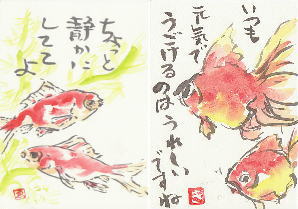 ちょっと
静かに
してて
よ
いつも
元気で
うごける
のはうれしい
ですね